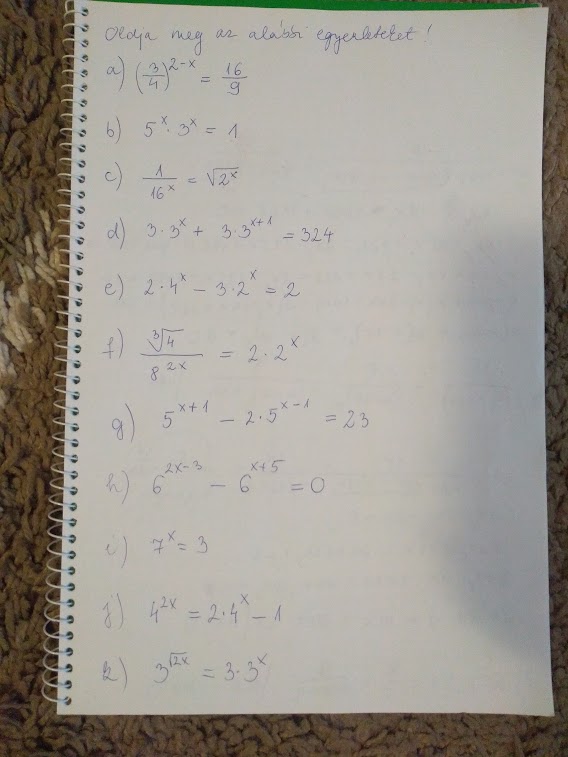 Oldja meg az alábbi egyenleteket!
a) (3/4)^(2-x) = 16/9
b) 5^x · 3^x = 1
c) 1/16^x = √(2^x)
d) 3·3^x + 3·3^(x+1) = 324
e) 2·4^x − 3·2^x = 2
f) ∛4 / 8^(2x) = 2·2^x
g) 5^(x+1) − 2·5^(x−1) = 23
h) 6^(2x−3) − 6^(x+5) = 0
i) 7^x = 3
j) 4^(2x) = 2·4^x − 1
k) 3^(√(2x)) = 3·3^x